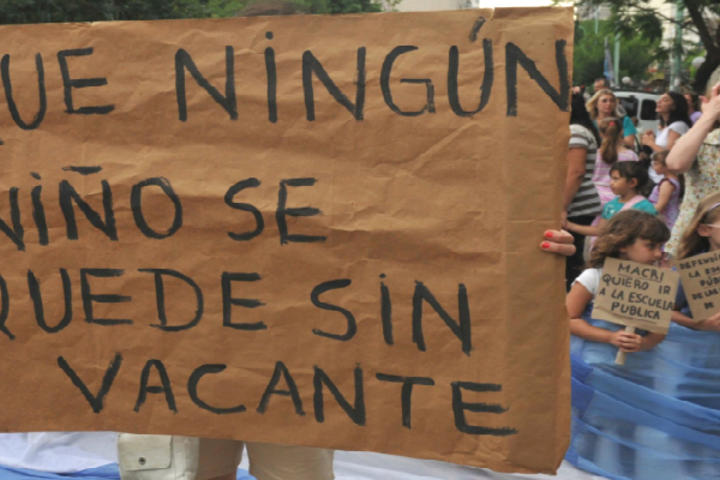 QUE NINGÚN
NIÑO SE
QUEDE SIN
VACANTE
MACRI
QUIERO IR
A LA ESCUELA
PUBLICA
DEFENDI
LA ES
PÚB
DE LA